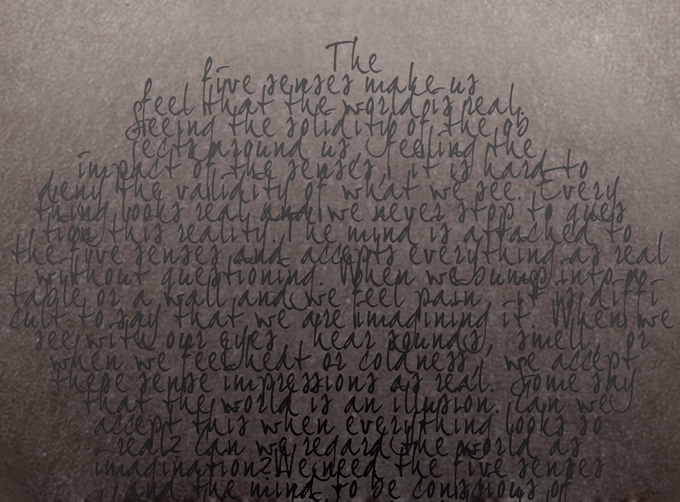 The
five senses make us
feel that the world is real.
Seeing the solidity of the ob
jects around us, feeling the
impact of the senses, it is hard to
deny the validity of what we see. Every
thing looks real and we never stop to ques
tion this reality. The mind is attached to
the five senses and accepts everything as real
without questioning. When we bump into
table or a wall and we feel pain, it is diffi
cult to say that we are imagining it. When we
see with our eyes, hear sounds, smell, or
when we feel heat or coldness, we accept
these sense impressions as real. Some say
that the world is an illusion. Can we
accept this when everything looks so
real? Can we regard the world as
imagination? We need the five senses
and the mind to be conscious of